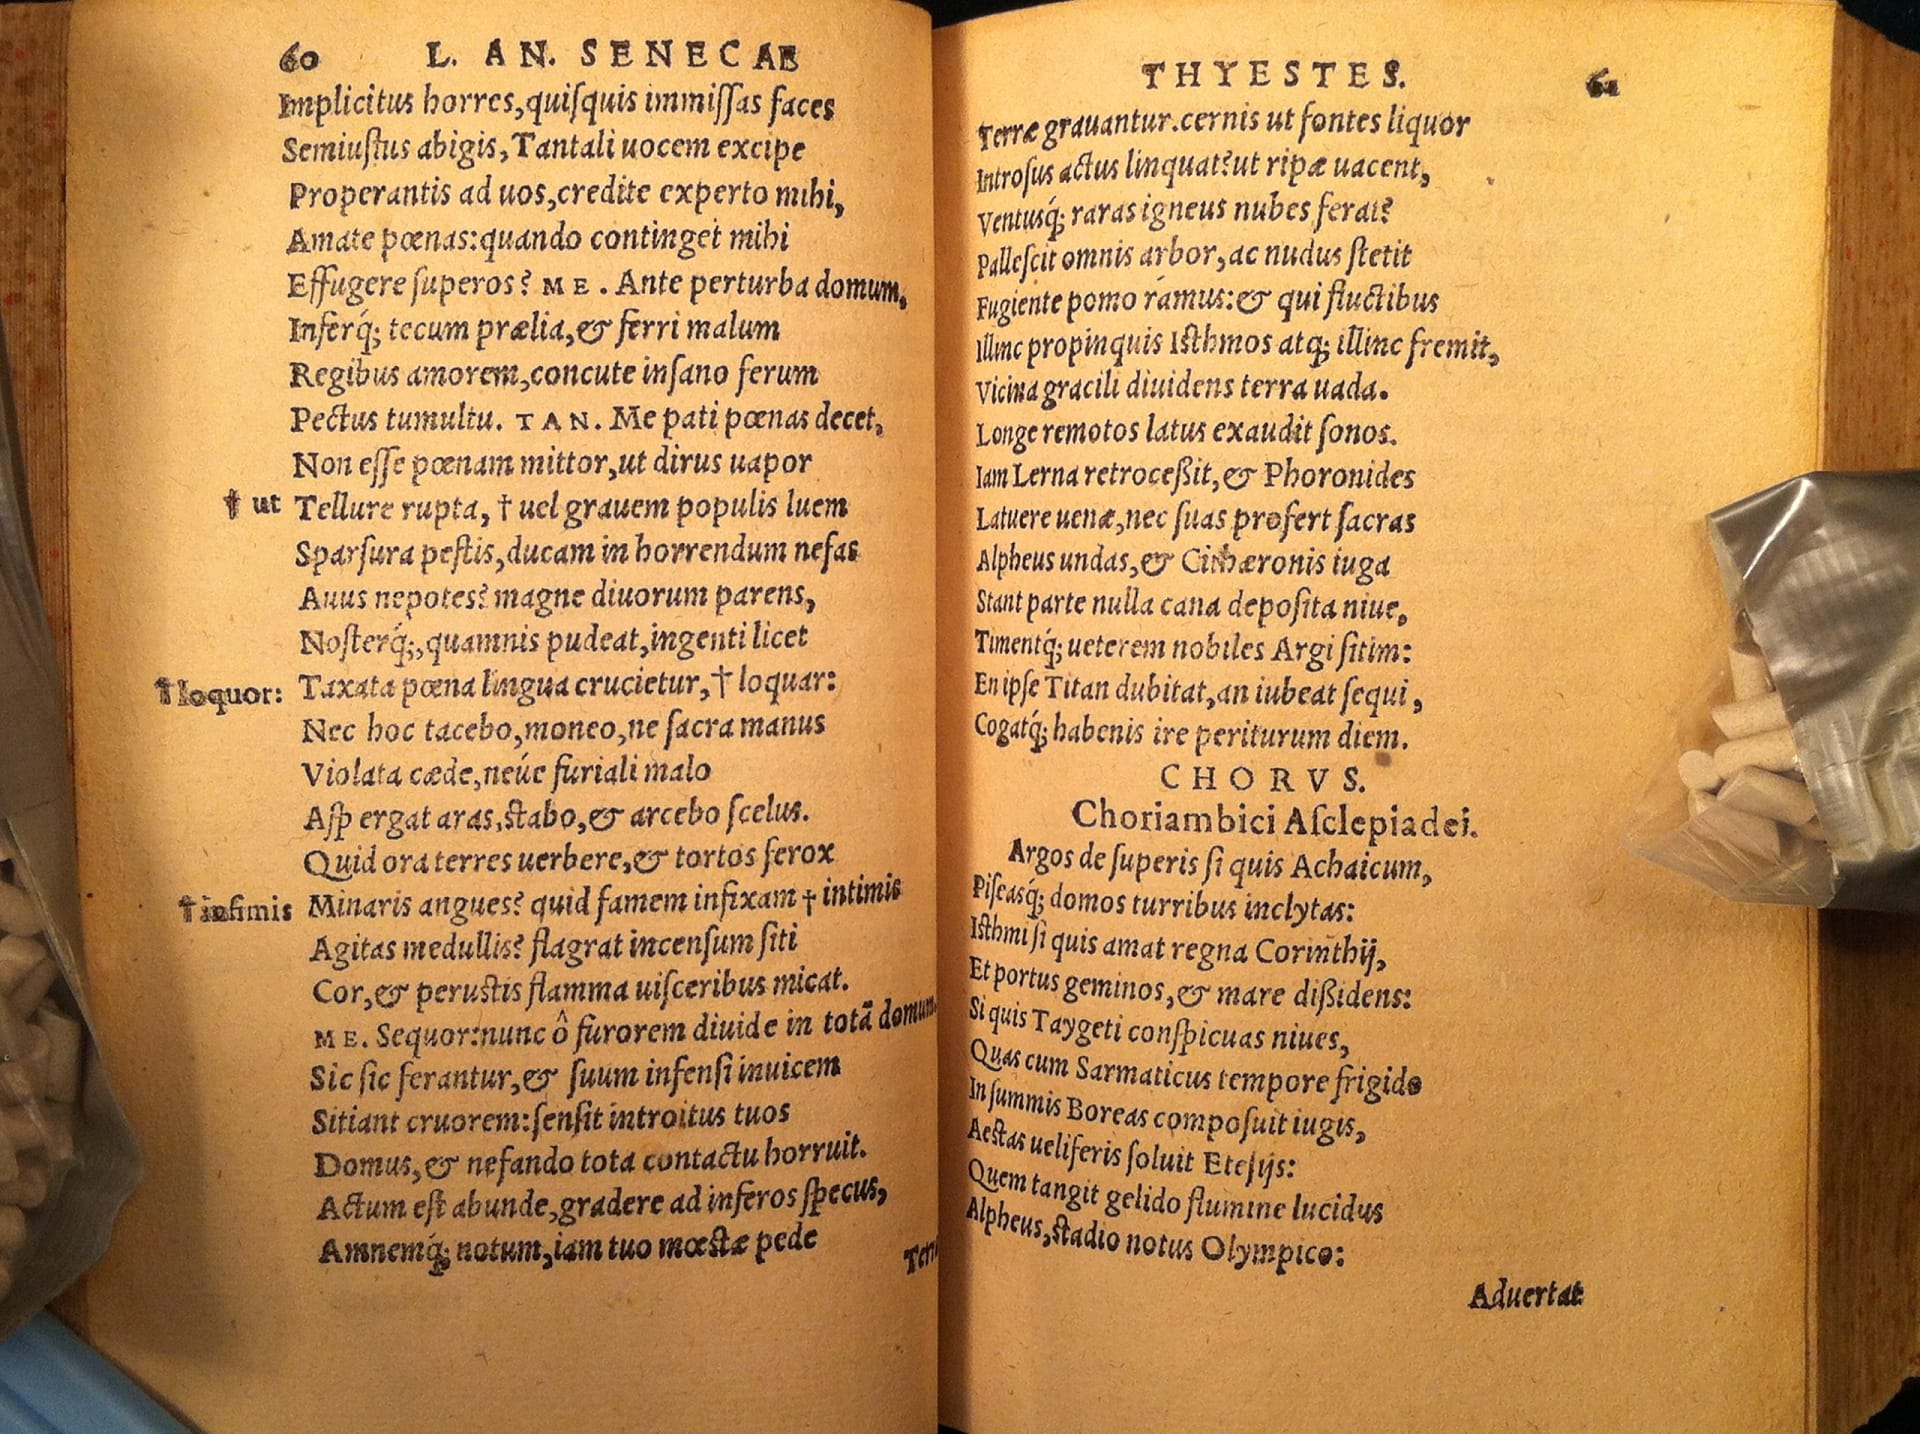 60 L. AN. SENECAE
Implicitus horres,quiſquis immiſſas faces
Semiuſtus abigis,Tantali uocem excipe
Properantis ad uos,credite experto mihi,
Amate pœnas:quando continget mihi
Effugere ſuperos? ME. Ante perturba domum,
Inferq́; tecum prælia,& ferri malum
Regibus amorem,concute inſano ferum
Pectus tumultu. TAN. Me pati pœnas decet,
Non eſſe pœnam mittor,ut dirus uapor
† ut Tellure rupta, † uel grauem populis luem
Sparſura peſtis,ducam in horrendum nefas
Auus nepotes? magne diuorum parens,
Noſterq́;,quamnis pudeat,ingenti licet
† loquor: Taxata pœna lingua crucietur,† loquar:
Nec hoc tacebo,moneo,ne ſacra manus
Violata cæde,neúe furiali malo
Aſp ergat aras,ſtabo,& arcebo ſcelus.
Quid ora terres uerbere,& tortos ferox
† infimis Minaris angues? quid famem infixam † intimis
Agitas medullis? flagrat incenſum ſiti
Cor,& peruſtis flamma uiſceribus micat.
ME. Sequor:nunc ô furorem diuide in totā domum.
Sic ſic ferantur,& ſuum infenſi inuicem
Sitiant cruorem:ſenſit introitus tuos
Domus,& nefando tota contactu horruit.
Actum eſt abunde,gradere ad inferos ſpecus,
Amnemq́; notum,iam tuo mœſtæ pede
THYESTES. 61
Terræ grauantur.cernis ut fontes liquor
Introſus actus linquat?ut ripæ uacent,
Ventusq́; raras igneus nubes ferat?
Palleſcit omnis arbor,ac nudus ſtetit
Fugiente pomo ramus:& qui fluctibus
Illinc propinquis Iſthmos atq; illinc fremit,
Vicina gracili diuidens terra uada.
Longe remotos latus exaudit ſonos.
Iam Lerna retroceßit,& Phoronides
Latuere uenæ,nec ſuas profert ſacras
Alpheus undas,& Cithæronis iuga
Stant parte nulla cana depoſita niue,
Timentq́; ueterem nobiles Argi ſitim:
En ipſe Titan dubitat,an iubeat ſequi,
Cogatq́; habenis ire periturum diem.
CHORVS.
Choriambici Aſclepiadei.
Argos de ſuperis ſi quis Achaicum,
Piſeasq́; domos turribus inclytas:
Iſthmi ſi quis amat regna Corinthij,
Et portus geminos,& mare dißidens:
Si quis Taygeti conſpicuas niues,
Quas cum Sarmaticus tempore frigido
In ſummis Boreas compoſuit iugis,
Aeſtas ueliferis ſoluit Eteſijs:
Quem tangit gelido flumine lucidus
Alpheus,ſtadio notus Olympico:
Aduertat